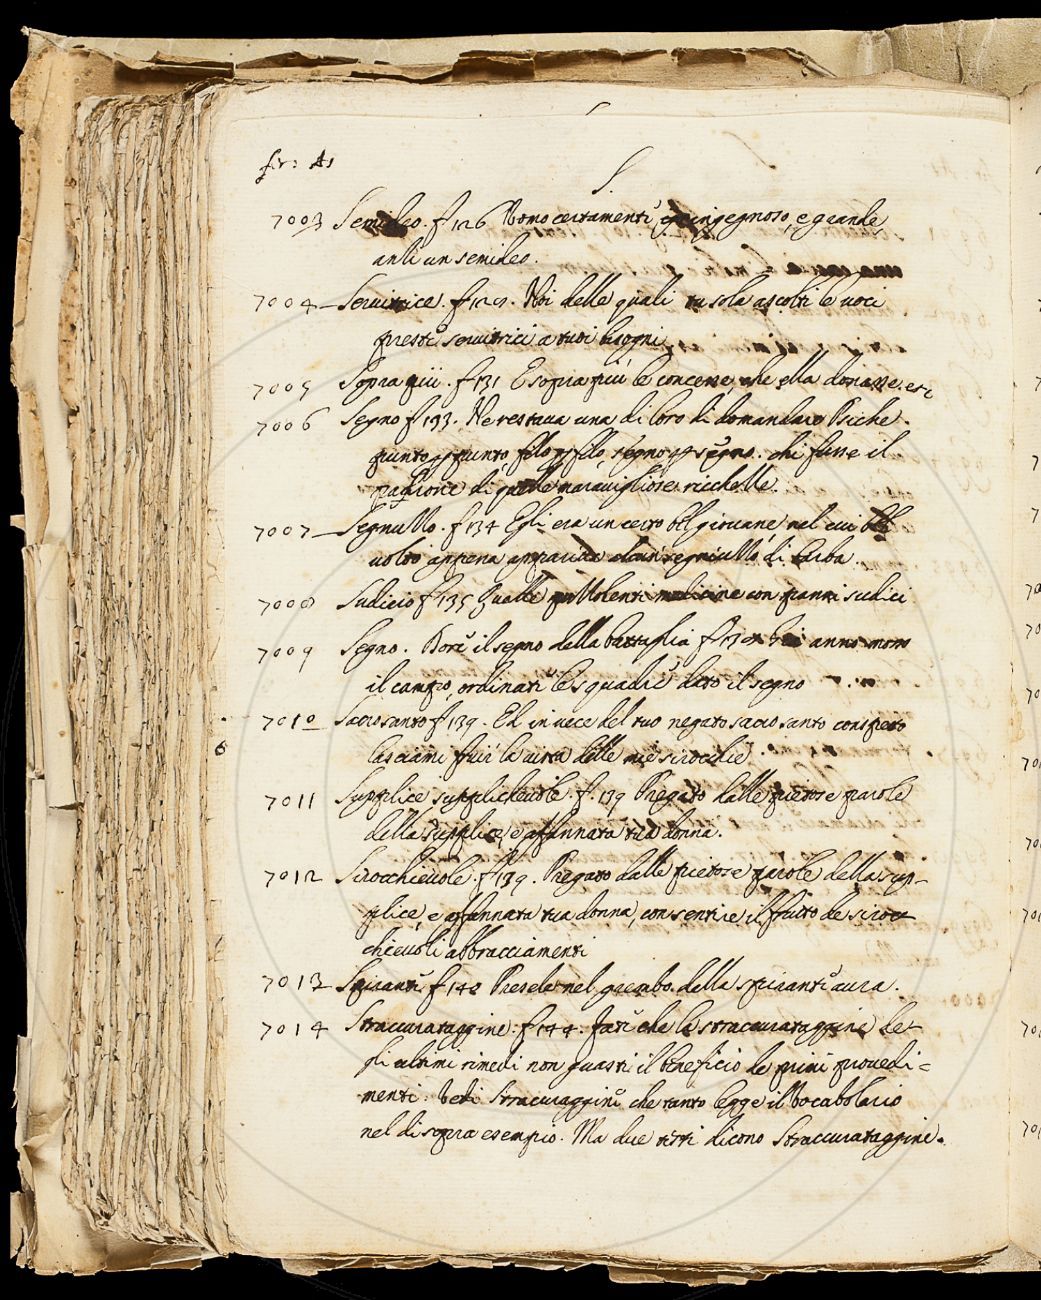 fir: As
S.
7003 Semideo. f 126 Uomo certamente ingegnoso, e grande,
anzi un semideo.
7004 Servitrice. f 127. Noi delle quali tu sola ascolti le voci
preste servitrici a tuoi bisogni
7005 Sopra più. f 131 E sopra più le concesse, che ella donasse. etc
7006 Segno f 133. Ne restava una di loro di domandare Psiche.
punto p punto, filo p filo, segno p segno. chi fusse il
padrone di quelle maravigliose ricchezze.
7007 Segnuzzo. f 134 Egli era un certo bel giovane, nel cui bel
volto appena appariva alcun segniuzzo di barba.
7008 Sudicio f 135 Quelle puzzolenti medicine con panni sudici
7009 Segno. Dore il segno della battaglia f 137 anno mosso
il campo, ordinate le squadre dato il segno
7010 Sacrosanto f 139. Ed in vece del tuo negato sacrosanto conspetto
lasciami fruir la vista delle mie sirocchie
7011 Supplice supplichevole. f. 139 Pregato dalle pietose parole
della supplice, e affannata tua donna.
7012 Sirocchievole. f 139. Pregato dalle pietose parole della sup-
plice, e affannata tua donna, consentile il frutto de siroc-
chievoli abbracciamenti
7013 Spirante f 142 Presela nel grembo della spirante aura.
7014 Straccurataggine. f 144. fate che la straccurataggine de-
gli ultimi rimedi non guasti il beneficio de primi provedi=
menti: Vedi Stracuraggine che tanto legge il Vocabolario
nel di sopra esempio. Ma due testi dicono Straccurataggine.